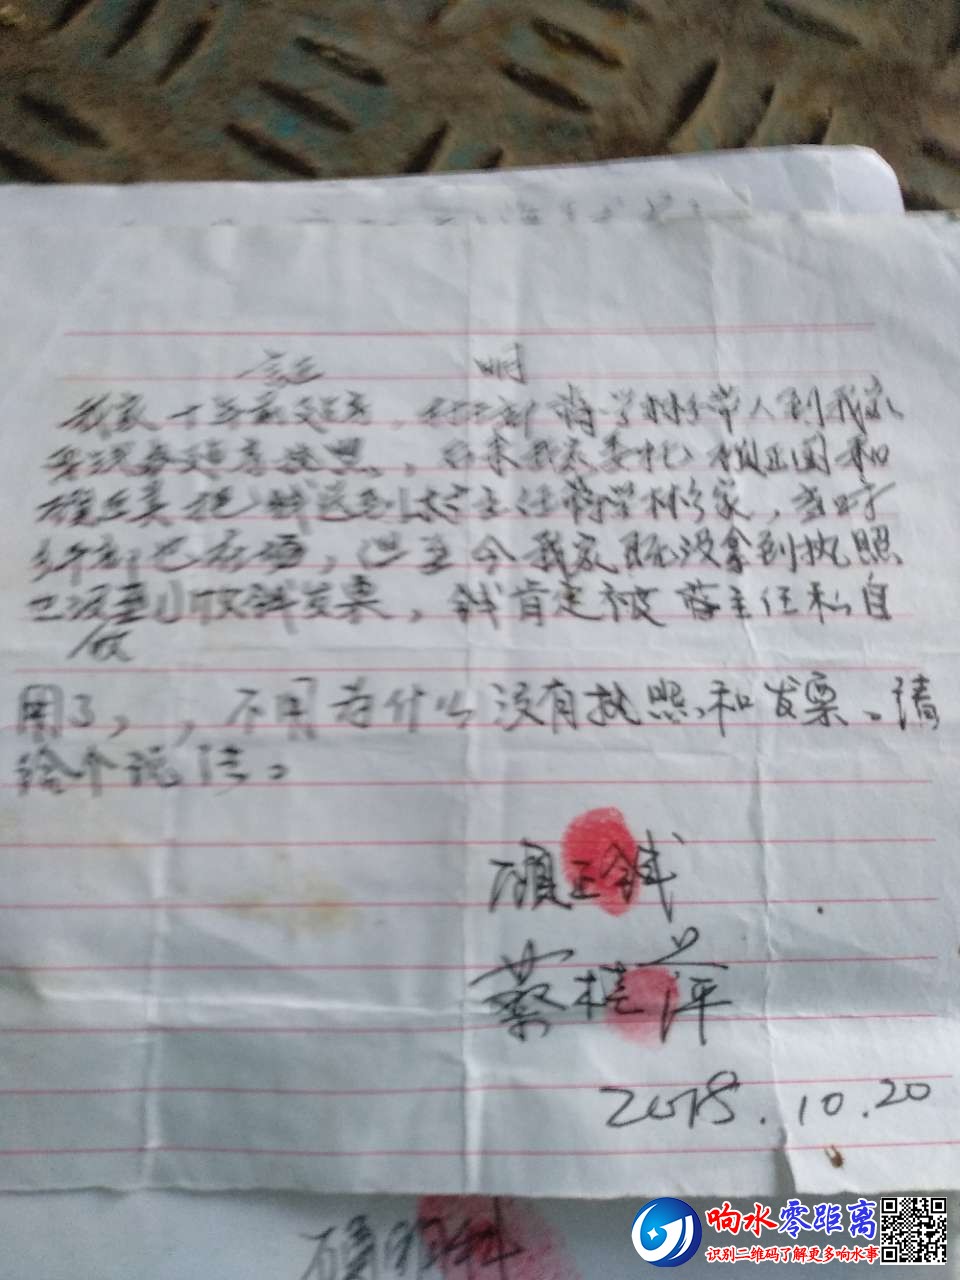 证 明
我家十年前建房，村干部 蒋学林带人到我家
要我家建房执照，后来我家委托 顾正国和
把钱送到 主任蒋学林家，当时
村干部也在场，但至今我家既没拿到执照
也没拿到收钱发票，钱肯定被 蒋主任私自
收
用了，，不用为什么没有执照和发票。请
给个说法。
顾正钱
蔡桂萍
2018.10.20
顾
响水零距离
识别二维码了解更多响水事